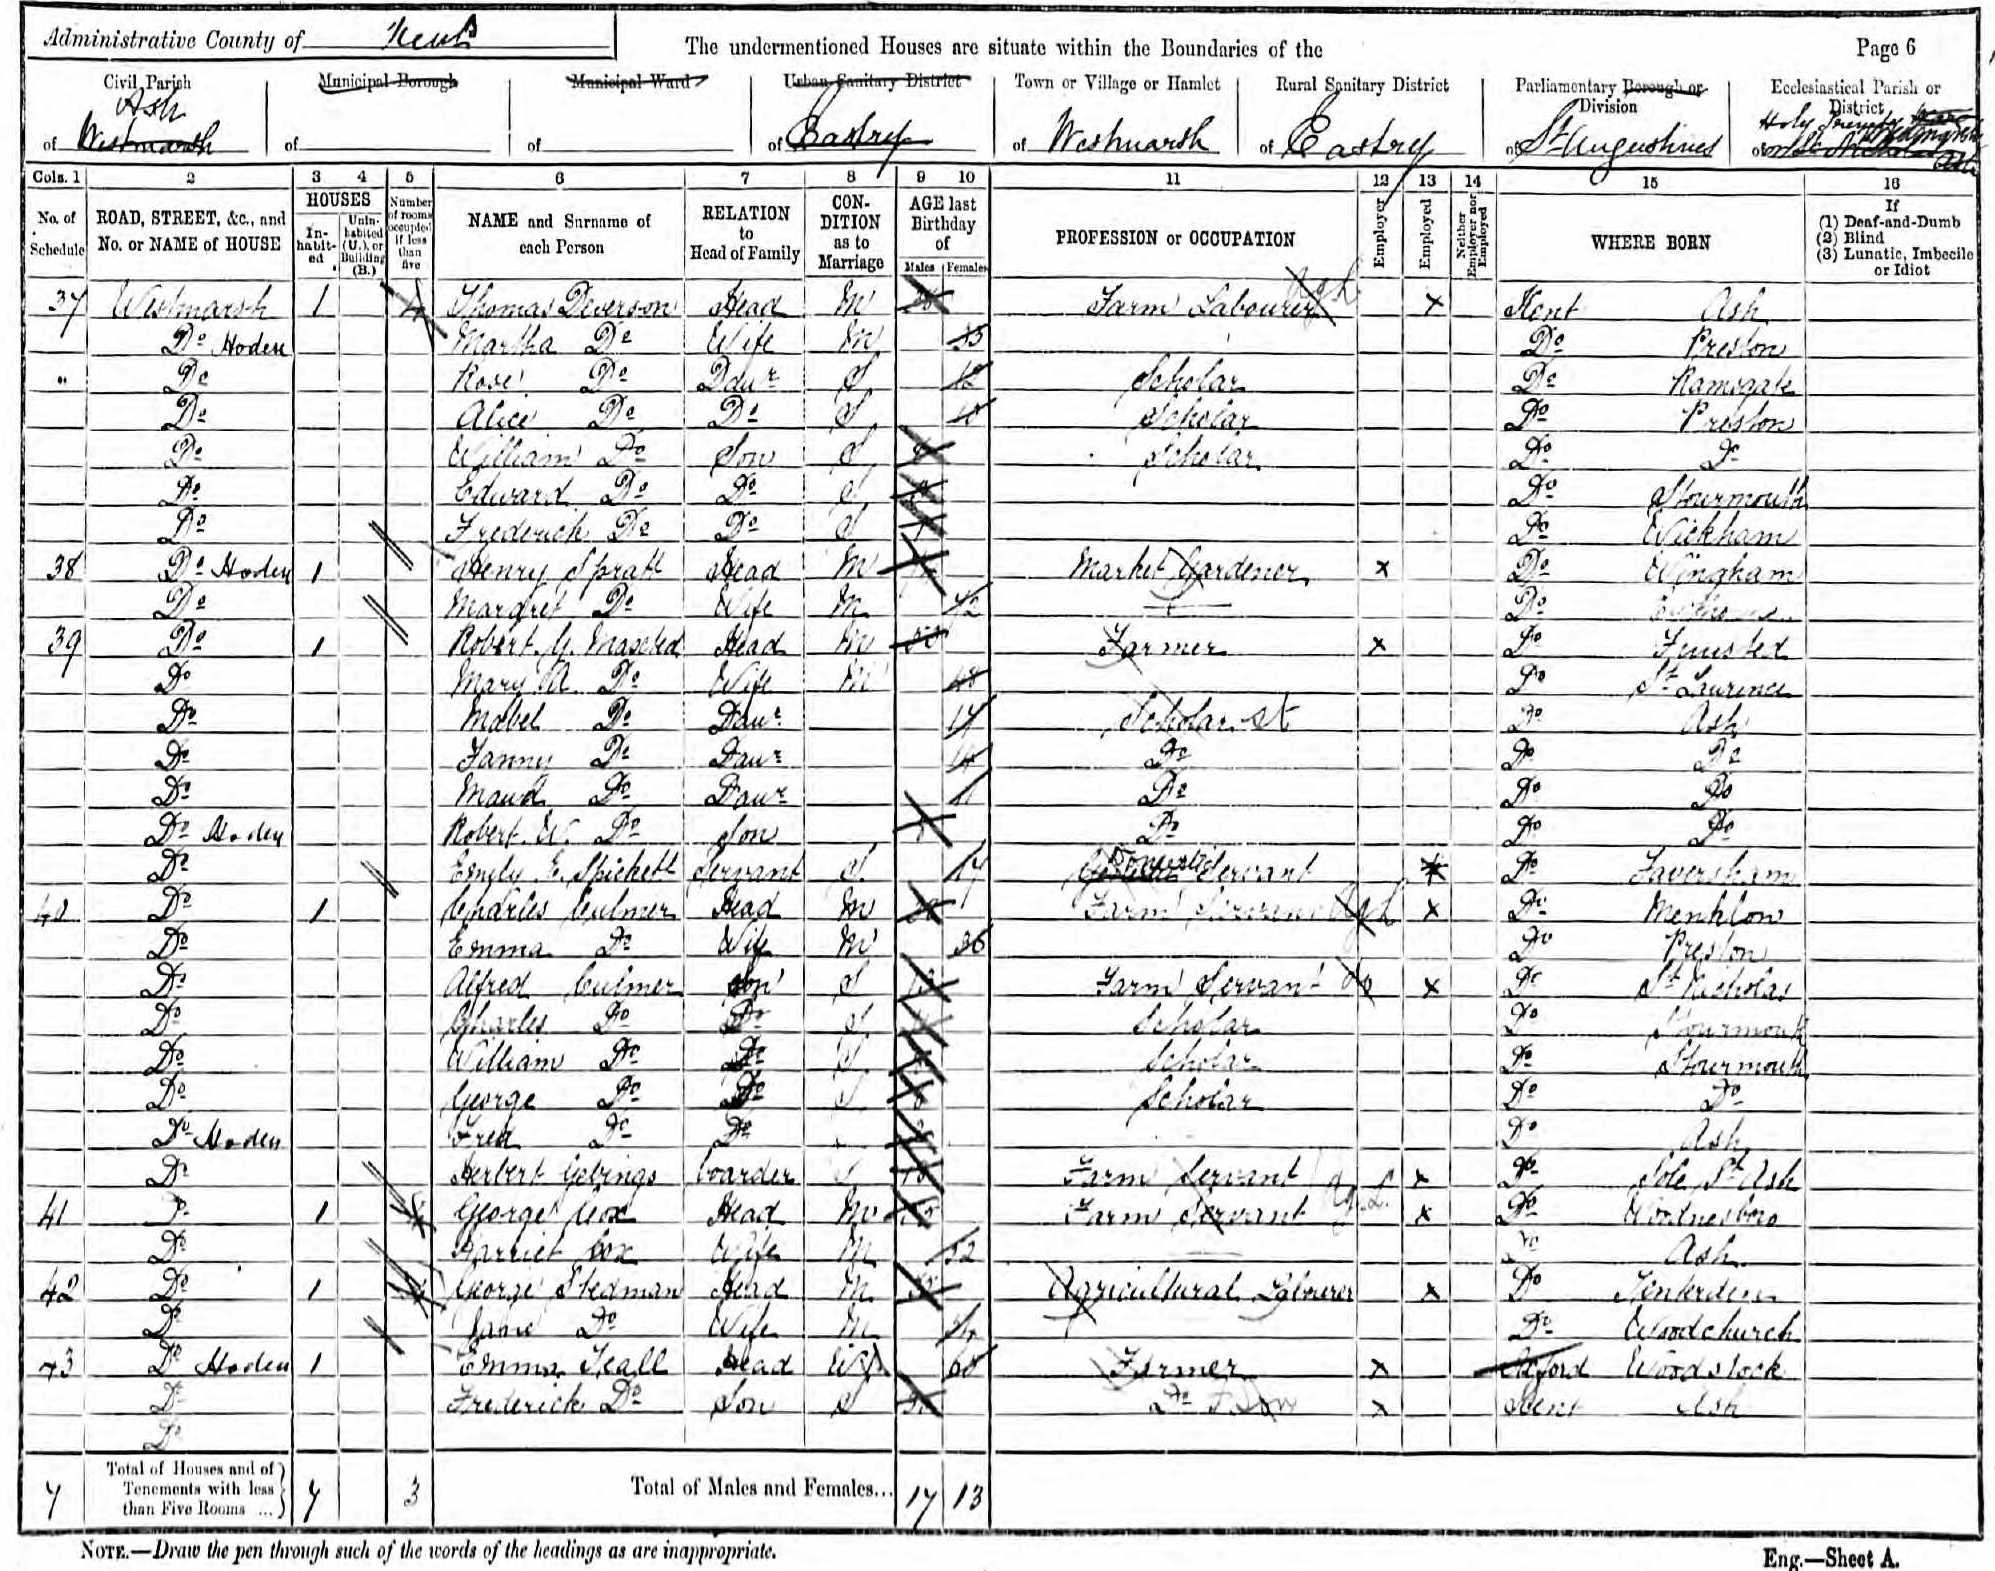 Administrative County of Kent
The undermentioned Houses are situate within the Boundaries of the
Page 6
Civil Parish
Municipal Borough
Municipal Ward
Urban Sanitary District
Town or Village or Hamlet
Rural Sanitary District
Parliamentary Borough or Division
Ecclesiastical Parish or District
of Ash Westmarsh
of
of
of Eastry
of Westmarsh
of Eastry
of St Augustines
of Holy Trinity
Cols. 1 2 3 4 5 6 7 8 9 10 11 12 13 14 15 16
No. of Schedule
ROAD, STREET, &c., and No. or NAME of HOUSE
HOUSES
In-habit-ed
Unin-habited (U.), or Building (B.)
Number of rooms occupied if less than five
NAME and Surname of each Person
RELATION to Head of Family
CON-DITION as to Marriage
AGE last Birthday of
Males Females
PROFESSION or OCCUPATION
Employer
Employed
Neither Employer nor Employed
WHERE BORN
If
(1) Deaf-and-Dumb
(2) Blind
(3) Lunatic, Imbecile or Idiot
37 Westmarsh 1 4 Thomas Deverson Head M Farm Labourer Ag L x Kent Ash
Do Hoden Martha Do Wife M 35 Do Preston
" Do Rose Do Daur S 12 Scholar Do Ramsgate
Do Alice Do Do S 10 Scholar Do Preston
Do William Do Son S Scholar Do Do
Do Edward Do Do S Do Stourmouth
Do Frederick Do Do S 1 Do Wickham
38 Do Hoden 1 Henry Spratt Head M Market Gardener x Do Wingham
Do Margret Do Wife M 42 Do
39 Do 1 Robert. G. Maxted Head M x Farmer Do
Do Mary A. Do Wife M 48 Do St Laurence
Do Mabel Do Daur 17 Scholar st Do Ash
Do Fanny Do Daur 14 Do Do Do
Do Maud Do Daur 11 Do Do Do
Do Hoden Robert. W. Do Son Do Do Do
Do Emily E. Spickett Servant S. 17 Domestic Servant x Do Faversham
40 Do 1 Charles Culmer Head M Farm Servant Ag L x Do Menklow
Do Emma Do Wife M 36 Do Preston
Do Alfred Culmer Son S Farm Servant do x Do St Nicholas
Do Charles Do Do S Scholar Do Stourmouth
Do William Do Do S Scholar Do Stourmouth
Do George Do Do S Scholar Do Do
Do Hoden Fred Do Do Do Ash
Do Herbert Gebings boarder S Farm Servant x Do Sole St Ash
41 Do 1 4 George Cox Head M Farm Servant Ag. L. x Do Woodnesboro
Do Harriet Cox Wife M 52 Do Ash
42 Do 1 4 George Stedman Head M Agricultural Labourer x Do Tenterden
Do Jane Do Wife M Do Woodchurch
43 Do Hoden 1 Emma Teall Head Wd 68 Farmer x Oxford Woodstock
Do Frederick Do Son S Do F. Son x Kent Ash
Do
7 Total of Houses and of Tenements with less than Five Rooms ... 7 3 Total of Males and Females... 17 13
NOTE.—Draw the pen through such of the words of the headings as are inappropriate.
Eng.—Sheet A.